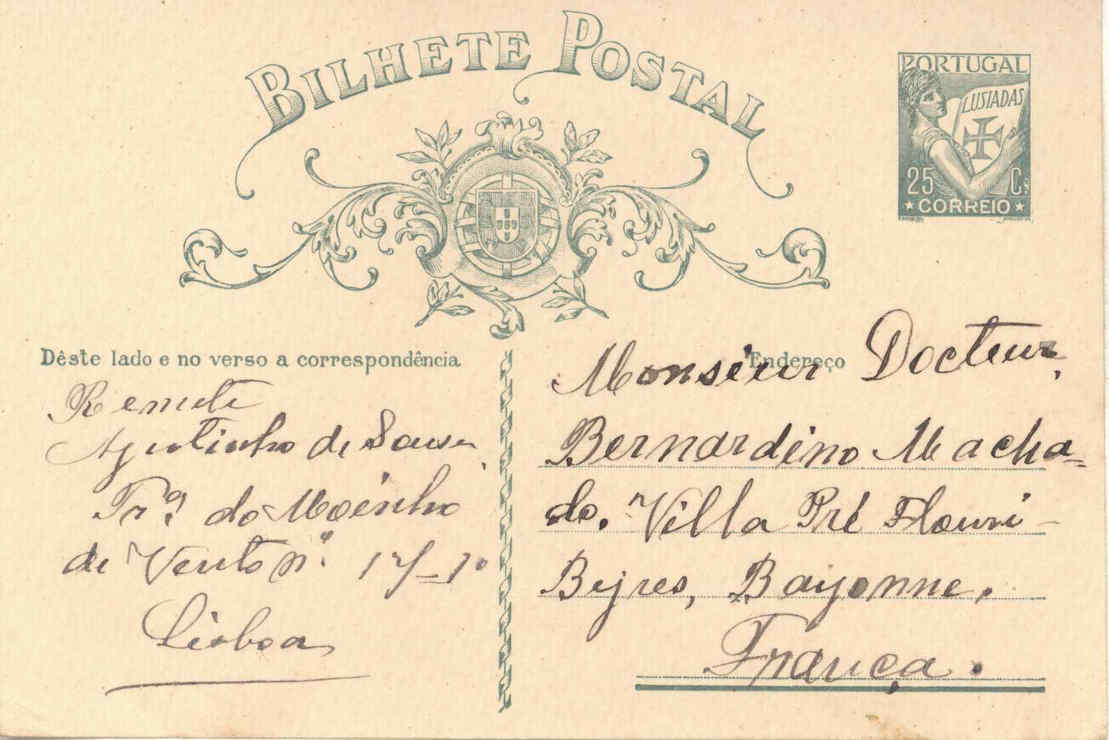 BILHETE POSTAL
PORTUGAL
LUSIADAS
25 C.
CORREIO
Dêste lado e no verso a correspondência
Remete
Agostinho de Sousa
Trª. do Moinho
de Vento nº. 17-1º
Lisboa
Endereço
Monsieur Docteur,
Bernardino Macha=
do. Villa Pré Flouri-
Byres, Bayonne,
França.